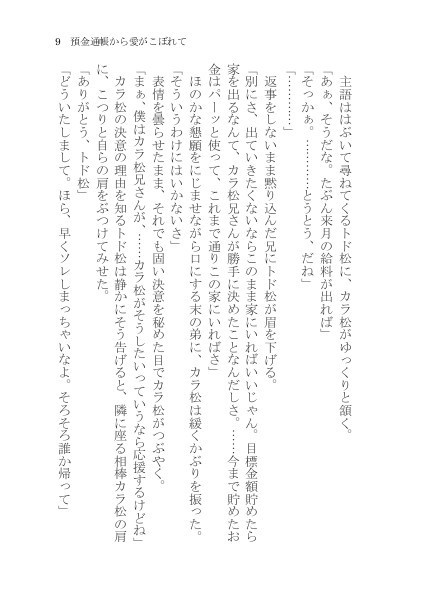 9　預金通帳から愛がこぼれて
主語ははぶいて尋ねてくるトド松に、カラ松がゆっくりと頷く。
「あぁ、そうだな。たぶん来月の給料が出れば」
「そっかぁ。…………とうとう、だね」
「…………」
返事をしないまま黙り込んだ兄にトド松が眉を下げる。
「別にさ、出ていきたくないならこのまま家にいればいいじゃん。目標金額貯めたら
家を出るなんて、カラ松兄さんが勝手に決めたことなんだしさ。……今まで貯めたお
金はパーッと使って、これまで通りこの家にいればさ」
ほのかな懇願をにじませながら口にする末の弟に、カラ松は緩くかぶりを振った。
「そういうわけにはいかないさ」
表情を曇らせたまま、それでも固い決意を秘めた目でカラ松がつぶやく。
「まぁ、僕はカラ松兄さんが、……カラ松がそうしたいっていうなら応援するけどね」
カラ松の決意の理由を知るトド松は静かにそう告げると、隣に座る相棒カラ松の肩
に、こつりと自らの肩をぶつけてみせた。
「ありがとう、トド松」
「どういたしまして。ほら、早くソレしまっちゃいなよ。そろそろ誰か帰って」